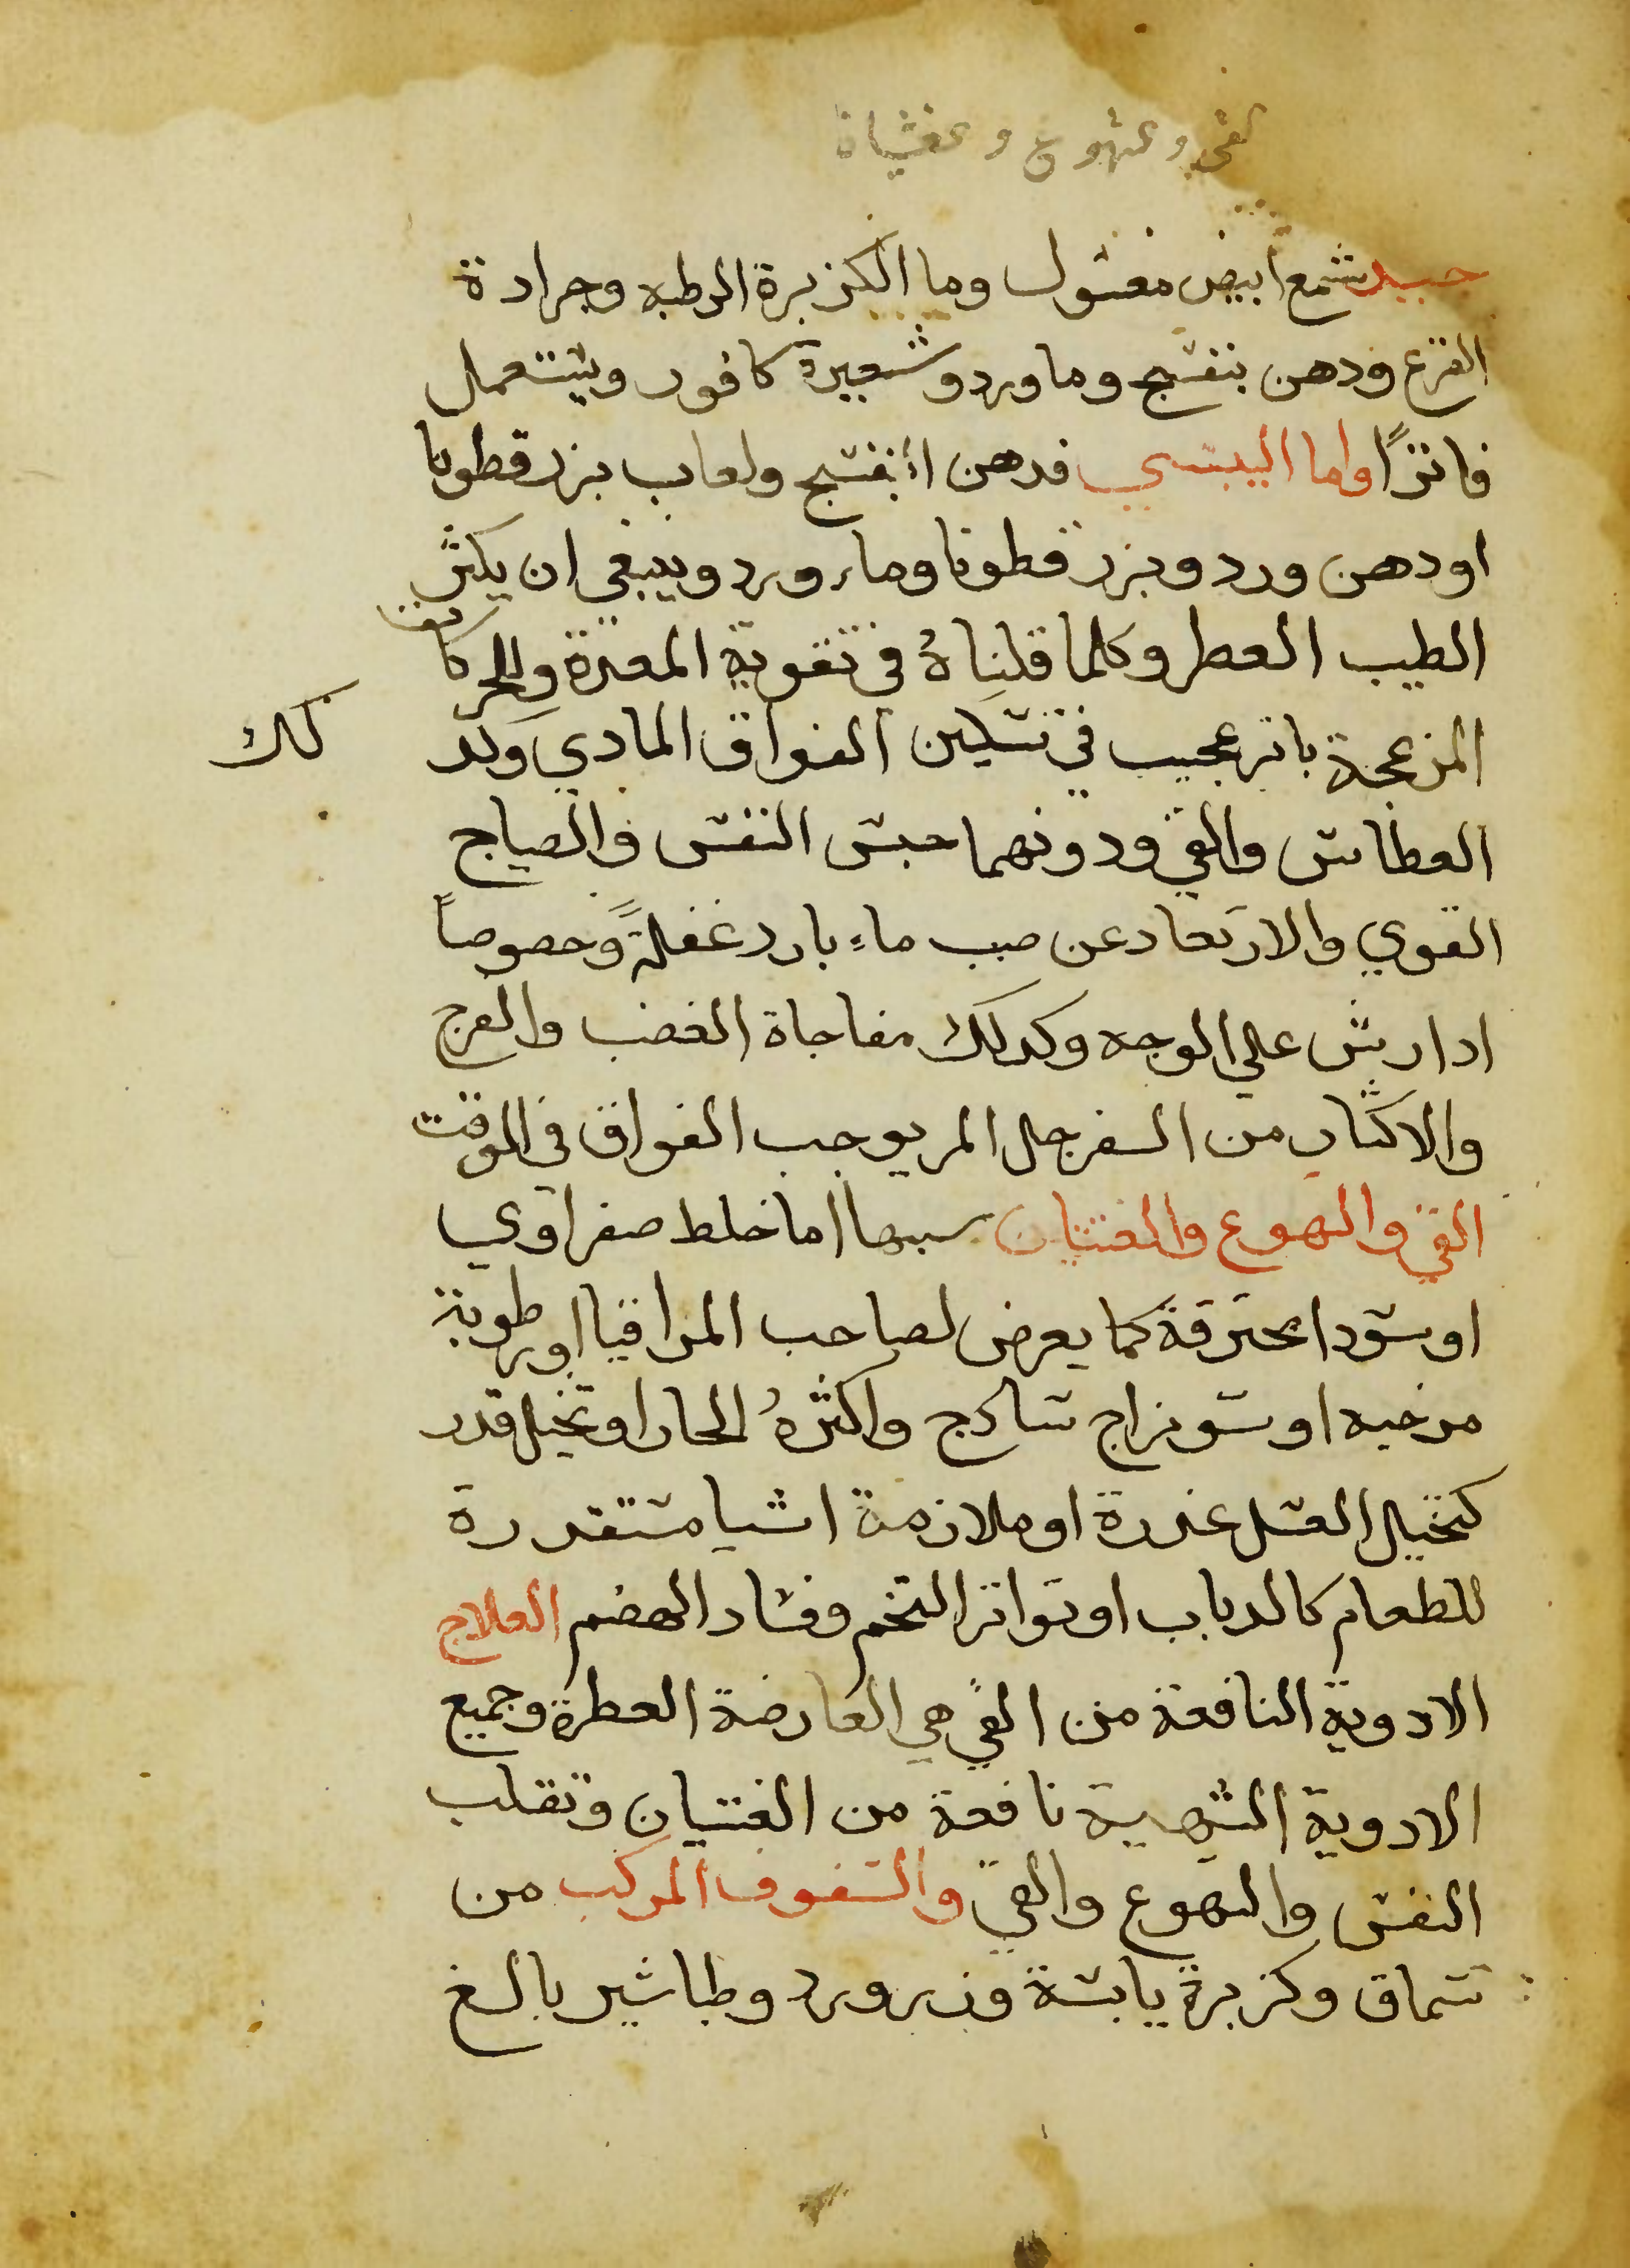 القي والتهوع والغثيان
جيد شمع ابيض مغسول وما الكزبرة الرطبه وجرادة
القرع ودهن بنفسج وما ورد وشعيرة كافور ويستعمل
فاترًا واما اليبسي فدهن البنفسج ولعاب بزر قطونا
او دهن ورد وبزر قطونا وماء ورد وينبغي ان يكثر
الطيب العطر وكلما قلناهُ في تقوية المعدة وللحركات
المزعجة تاثير عجيب في تسكين الفواق المادي وكذلك
العطاس والقي ودونهما حبس النفس والصياح
القوي والارتعاد عن صب ماءٍ بارد غفلةً وخصوصاً
ادا رش علي الوجه وكدلك مفاجاة الغضب والفرح
والاكثار من السفرجل المر يوجب الفواق في الوقت
القي والتهوع والغثيان سببها اما خلط صفراوي
او سودا محترقة كما يعرض لصاحب المراقيا او رطوبة
مرخيه او سو مزاج سادج واكثرهُ الحار او تخيل قدر
كتخيل العسل عدرة او ملازمة اشيا مستقدرة
للطعام كالدباب او تواتر التخم وفساد الهضم العلاج
الادوية النافعة من القي هي العارضة العطرة وجميع
الادوية الشهية نافعة من الغثيان وتقلب
النفس والتهوع والقي والسفوف المركب من
سماق وكزبرة يابسة وزر ورد وطباشير بالغ